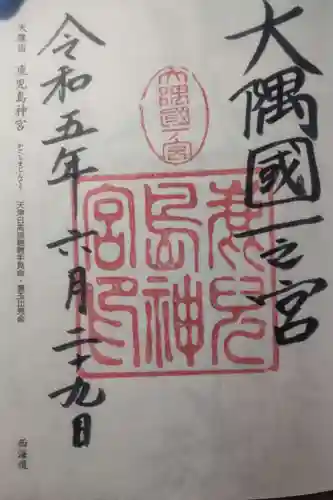 大隅國一之宮
大隅國一之宮
鹿兒島神宮印
令和五年 六月二十九日
大隅国 鹿児島神宮 かごしまじんぐう 天津日高彦穗穗出見命・豊玉比売命 西海道